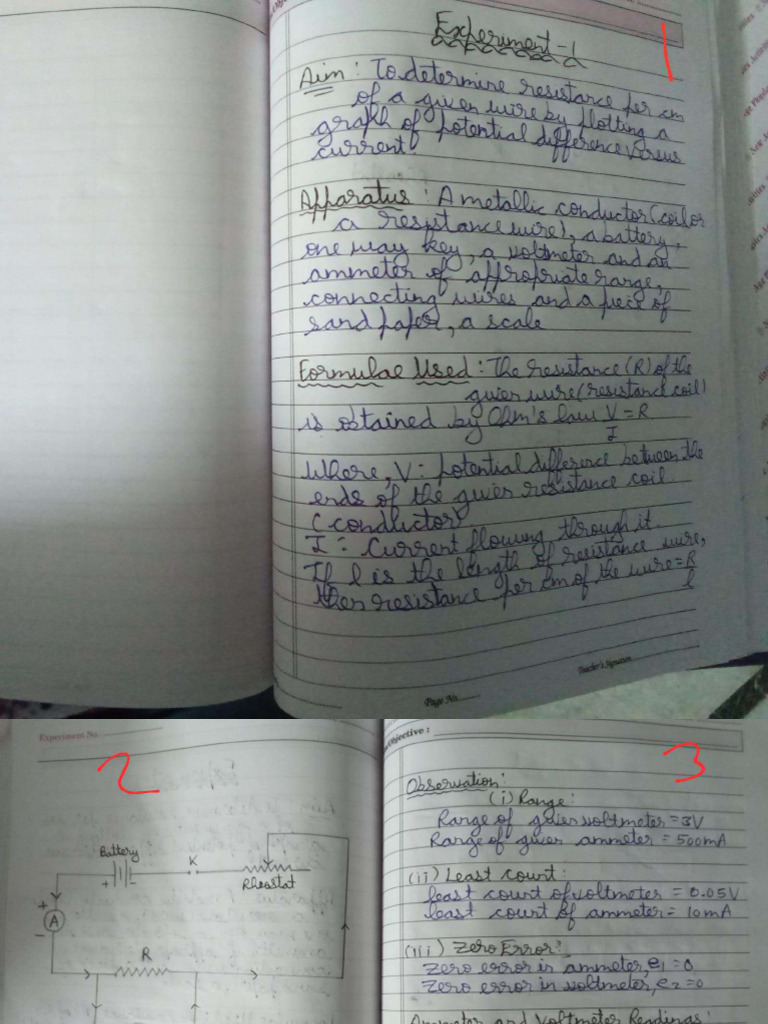 Experiment-1
1
Aim: To determine resistance per cm
of a given wire by plotting a
graph of potential difference versus
current.
Apparatus: A metallic conductor (coil or
a resistance wire), a battery,
one way key, a voltmeter and an
ammeter of appropriate range,
connecting wires and a piece of
sand paper, a scale
Formulae Used: The resistance (R) of the
given wire (resistance coil)
is obtained by Ohm's law V/I = R
Where, V: potential difference between the
ends of the given resistance coil.
(conductor)
I: Current flowing through it.
If l is the length of resistance wire,
then resistance per cm of the wire = R/l
Teacher's Signature
Page No.
Experiment No.
2
Battery
+
K
Rheostat
+
A
-
R
Objective:
3
Observation:
(i) Range:
Range of given voltmeter = 3V
Range of given ammeter = 500mA
(ii) Least count:
least count of voltmeter = 0.05V
least count of ammeter = 10mA
(iii) Zero Error:
Zero error in ammeter, e1 = 0
Zero error in voltmeter, e2 = 0
Ammeter and Voltmeter Readings: